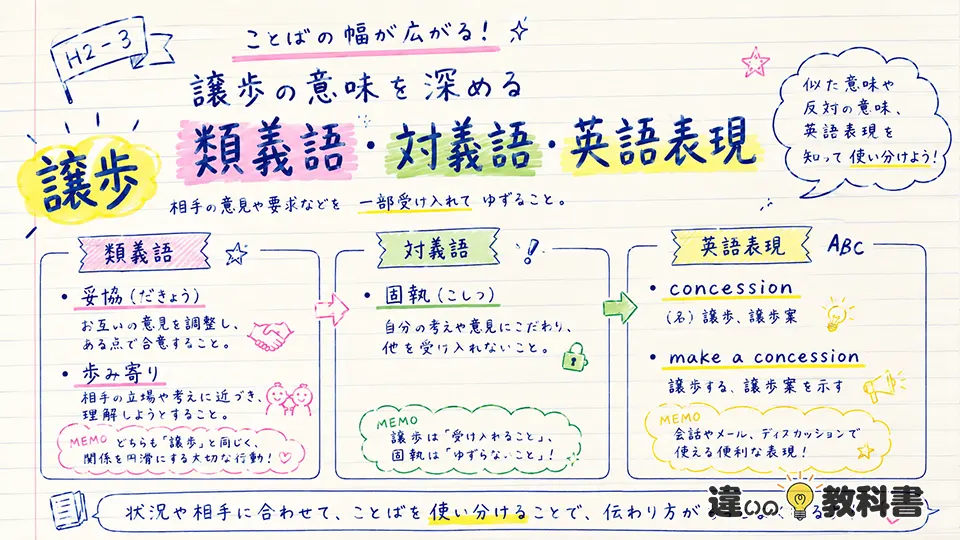 H2-3
ことばの幅が広がる!
譲歩の意味を深める
類義語・対義語・英語表現
譲歩
相手の意見や要求などを 一部受け入れて ゆずること。
似た意味や
反対の意味、
英語表現を
知って 使い分けよう!
類義語
• 妥協(だきょう)
お互いの意見を調整し、
ある点で合意すること。
• 歩み寄り
相手の立場や考えに近づき、
理解しようとすること。
MEMO どちらも「譲歩」と同じく、
関係を円滑にする大切な行動!
対義語
• 固執(こしつ)
自分の考えや意見にこだわり、
他を受け入れないこと。
MEMO
譲歩は「受け入れること」、
固執は「ゆずらないこと」!
英語表現 ABC
• concession
(名)譲歩、譲歩案
• make a concession
譲歩する、譲歩案を示す
MEMO
会話やメール、ディスカッションで
使える便利な表現!
状況や相手に合わせて、ことばを使い分けることで、伝わり方が
違いの教科書